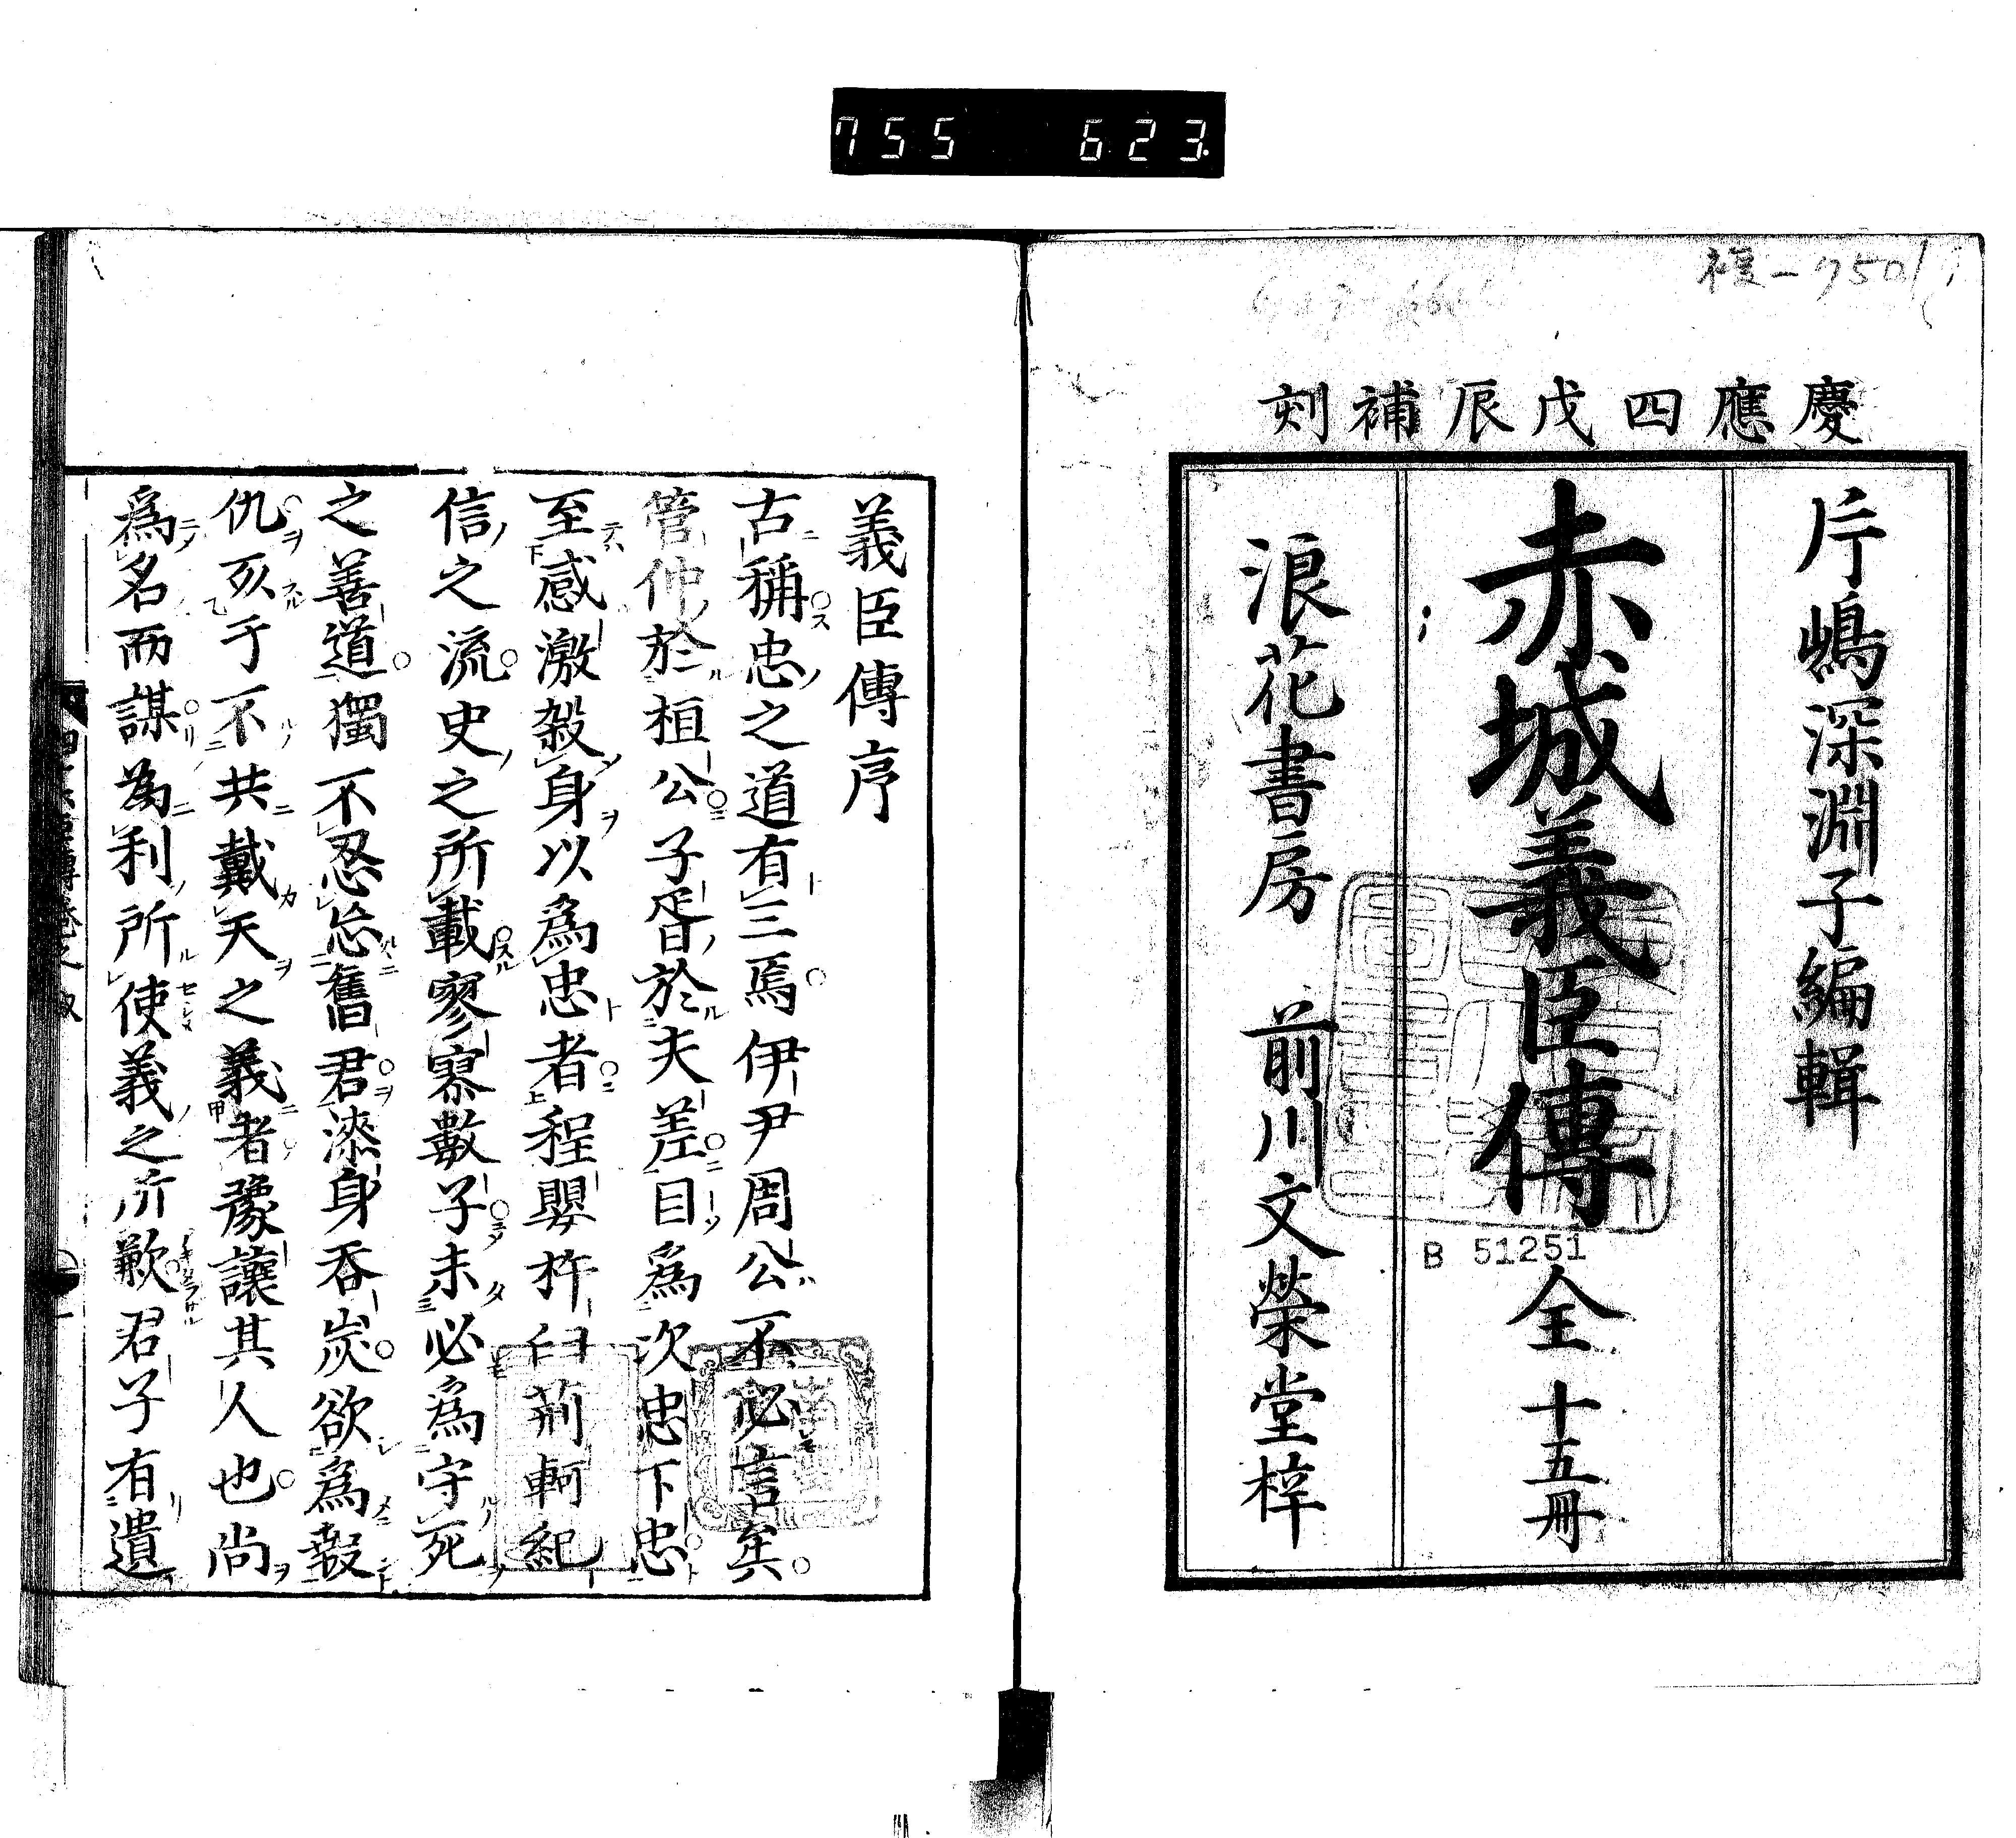 755 623.
慶應四戊辰補刻
片嶋深淵子編輯
赤城義臣傳 全十五冊
浪花書房 前川文榮堂梓
B 51251
義臣傳序
古稱忠之道有三焉伊尹周公不必言矣
管仲於桓公子胥於夫差目爲次忠下忠
至感激殺身以爲忠者程嬰杵臼荊軻紀
信之流史之所載寥寥數子未必爲守死
之善道獨不忍忘舊君漆身吞炭欲爲報
仇亥于不共戴天之義者豫讓其人也尚
爲名而謀為利所使義之所歉君子有遺